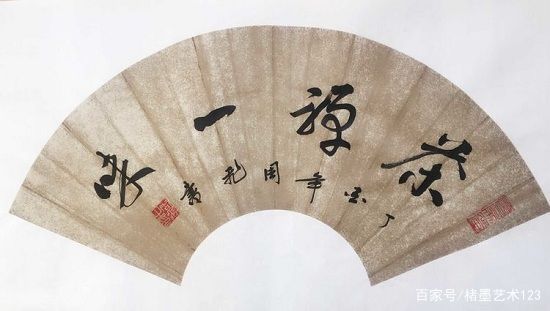 茶禅一味
丁酉年周
百家号/楮墨艺术123